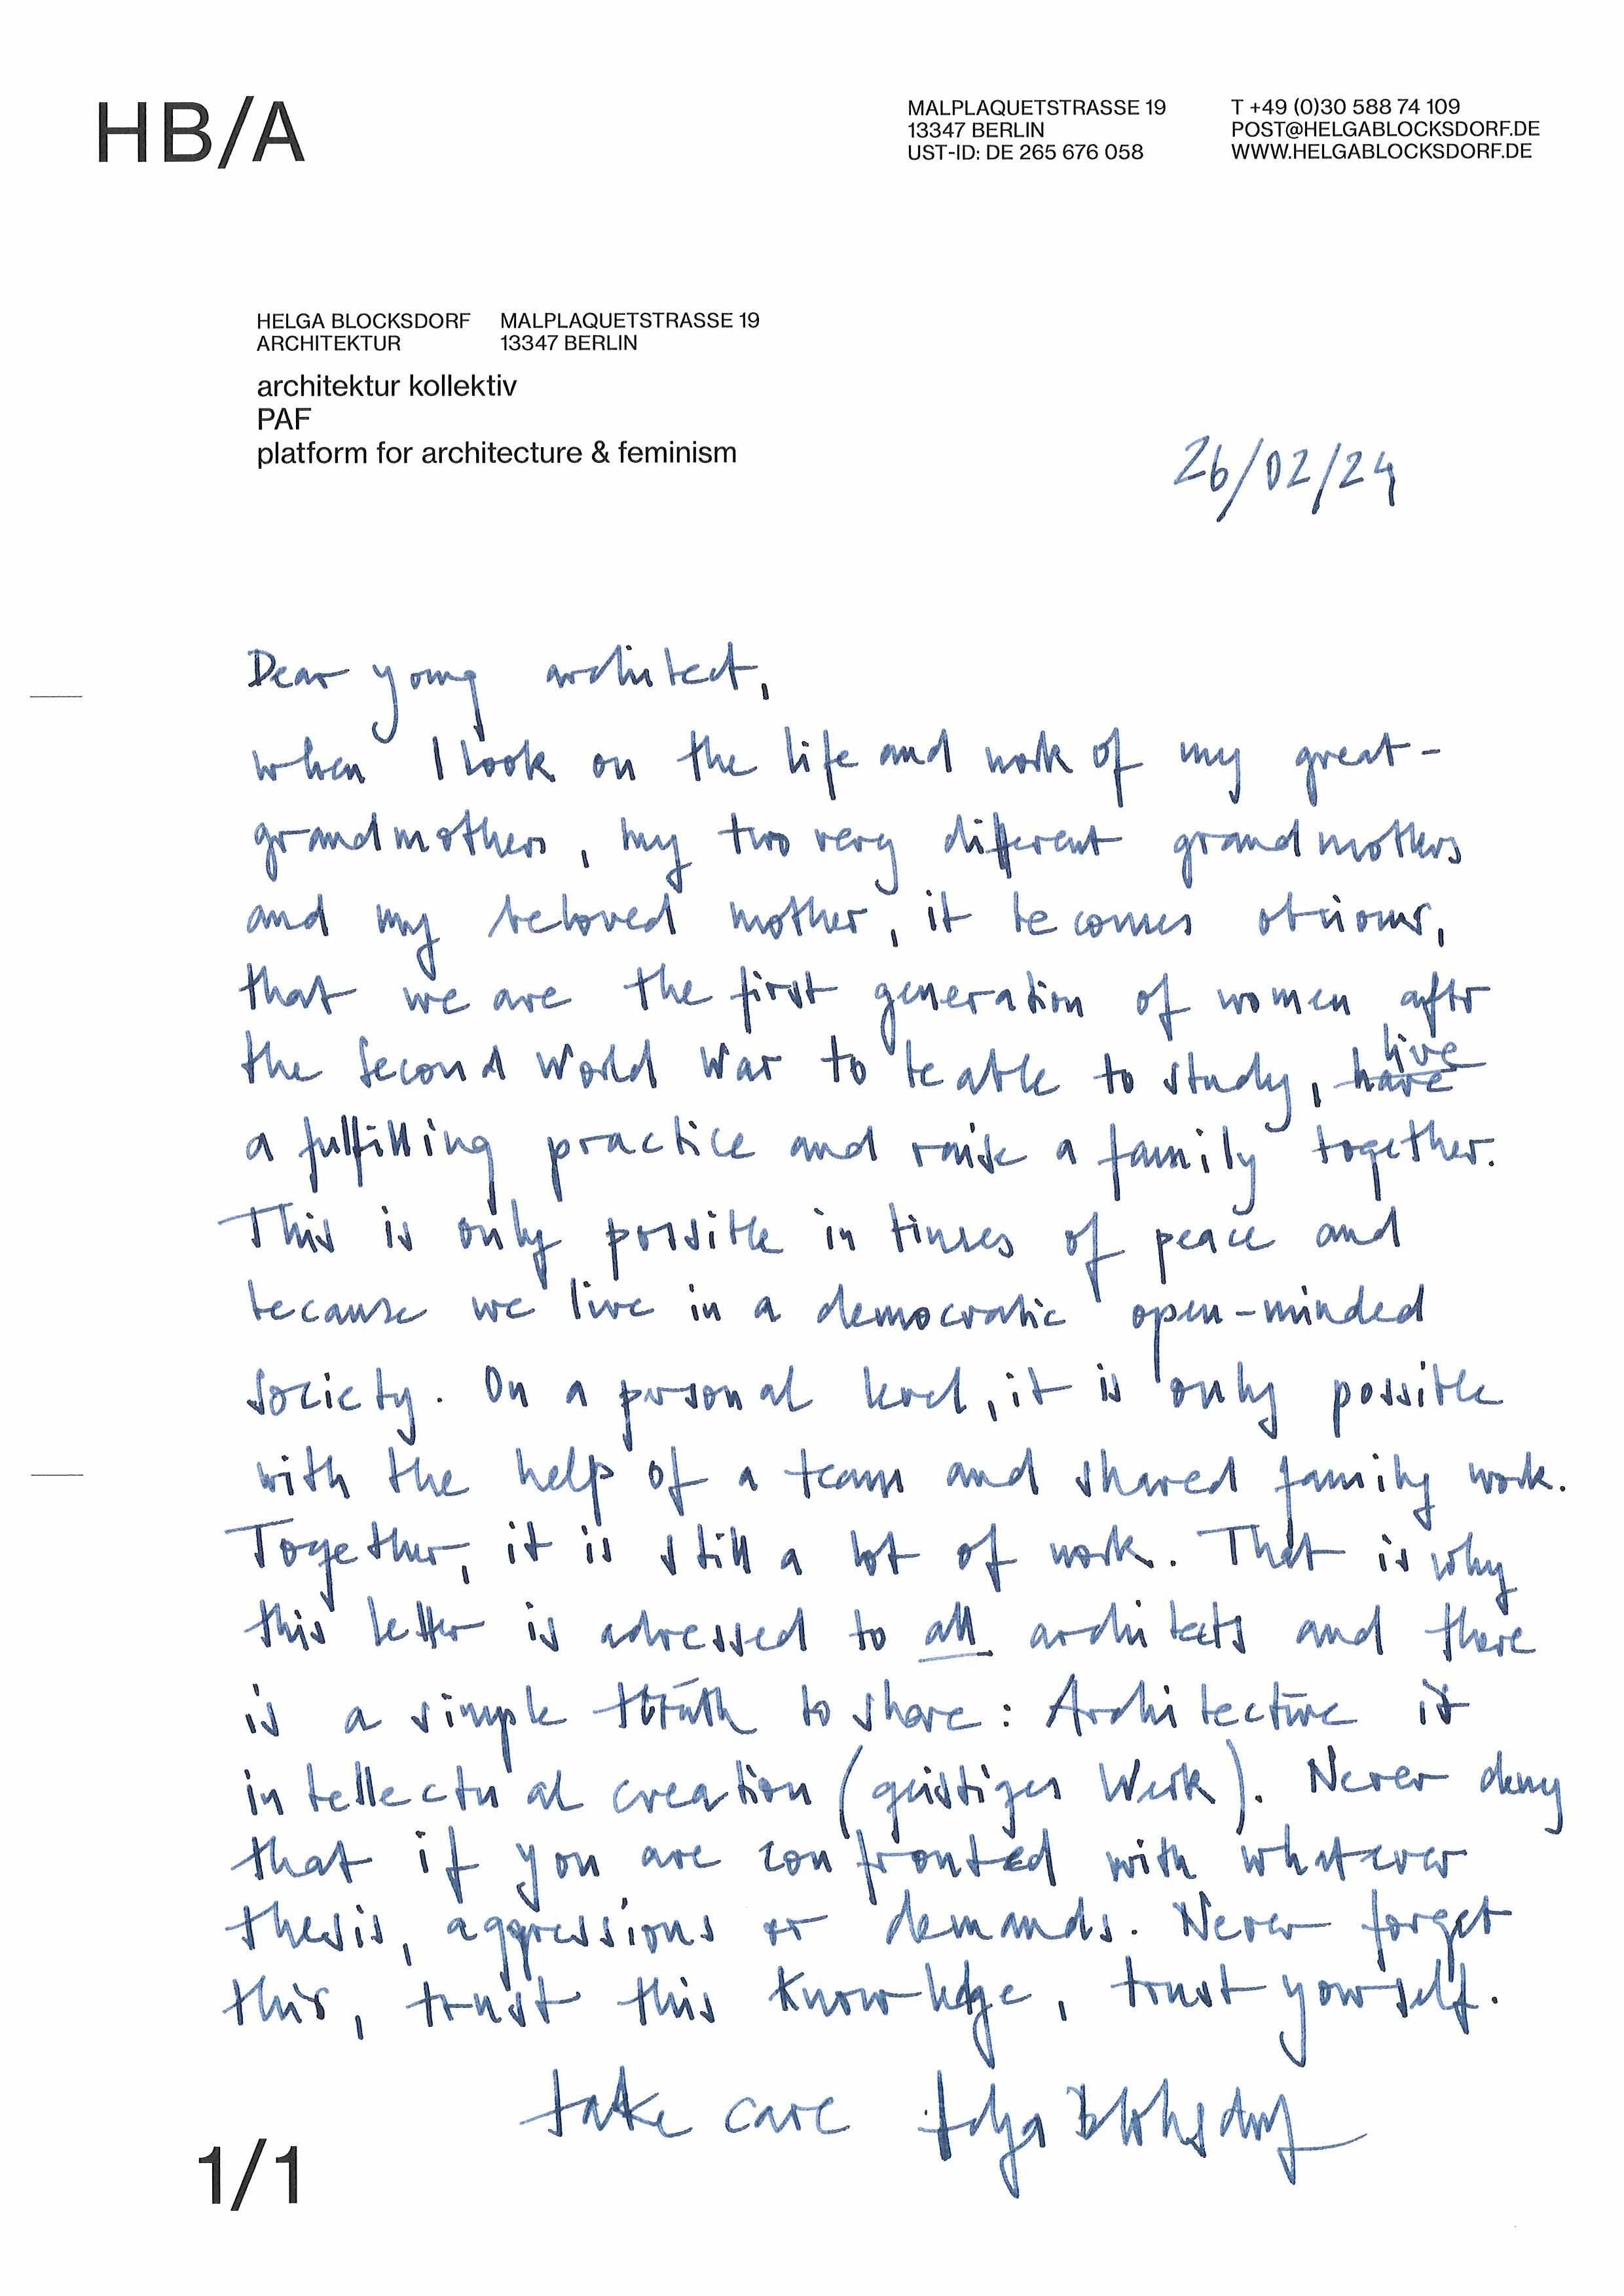 HB/A
MALPLAQUETSTRASSE 19
13347 BERLIN
UST-ID: DE 265 676 058
T +49 (0)30 588 74 109
POST@HELGABLOCKSDORF.DE
WWW.HELGABLOCKSDORF.DE
HELGA BLOCKSDORF
ARCHITEKTUR
MALPLAQUETSTRASSE 19
13347 BERLIN
architektur kollektiv
PAF
platform for architecture & feminism
26/02/24
Dear young architect,
when I look on the life and work of my great-
grandmothers, my two very different grandmothers
and my beloved mother, it becomes obvious,
that we are the first generation of women after
the Second World War to be able to study, have live
a fulfilling practice and raise a family together.
This is only possible in times of peace and
because we live in a democratic open-minded
society. On a personal level, it is only possible
with the help of a team and shared family work.
Together, it is still a lot of work. That is why
this letter is adressed to all architects and there
is a simple truth to share: Architecture is
intellectual creation (geistiges Werk). Never deny
that if you are confronted with whatever
thesis, aggressions or demands. Never forget
this, trust this knowledge, trust yourself.
take care Helga Blocksdorf
1/1